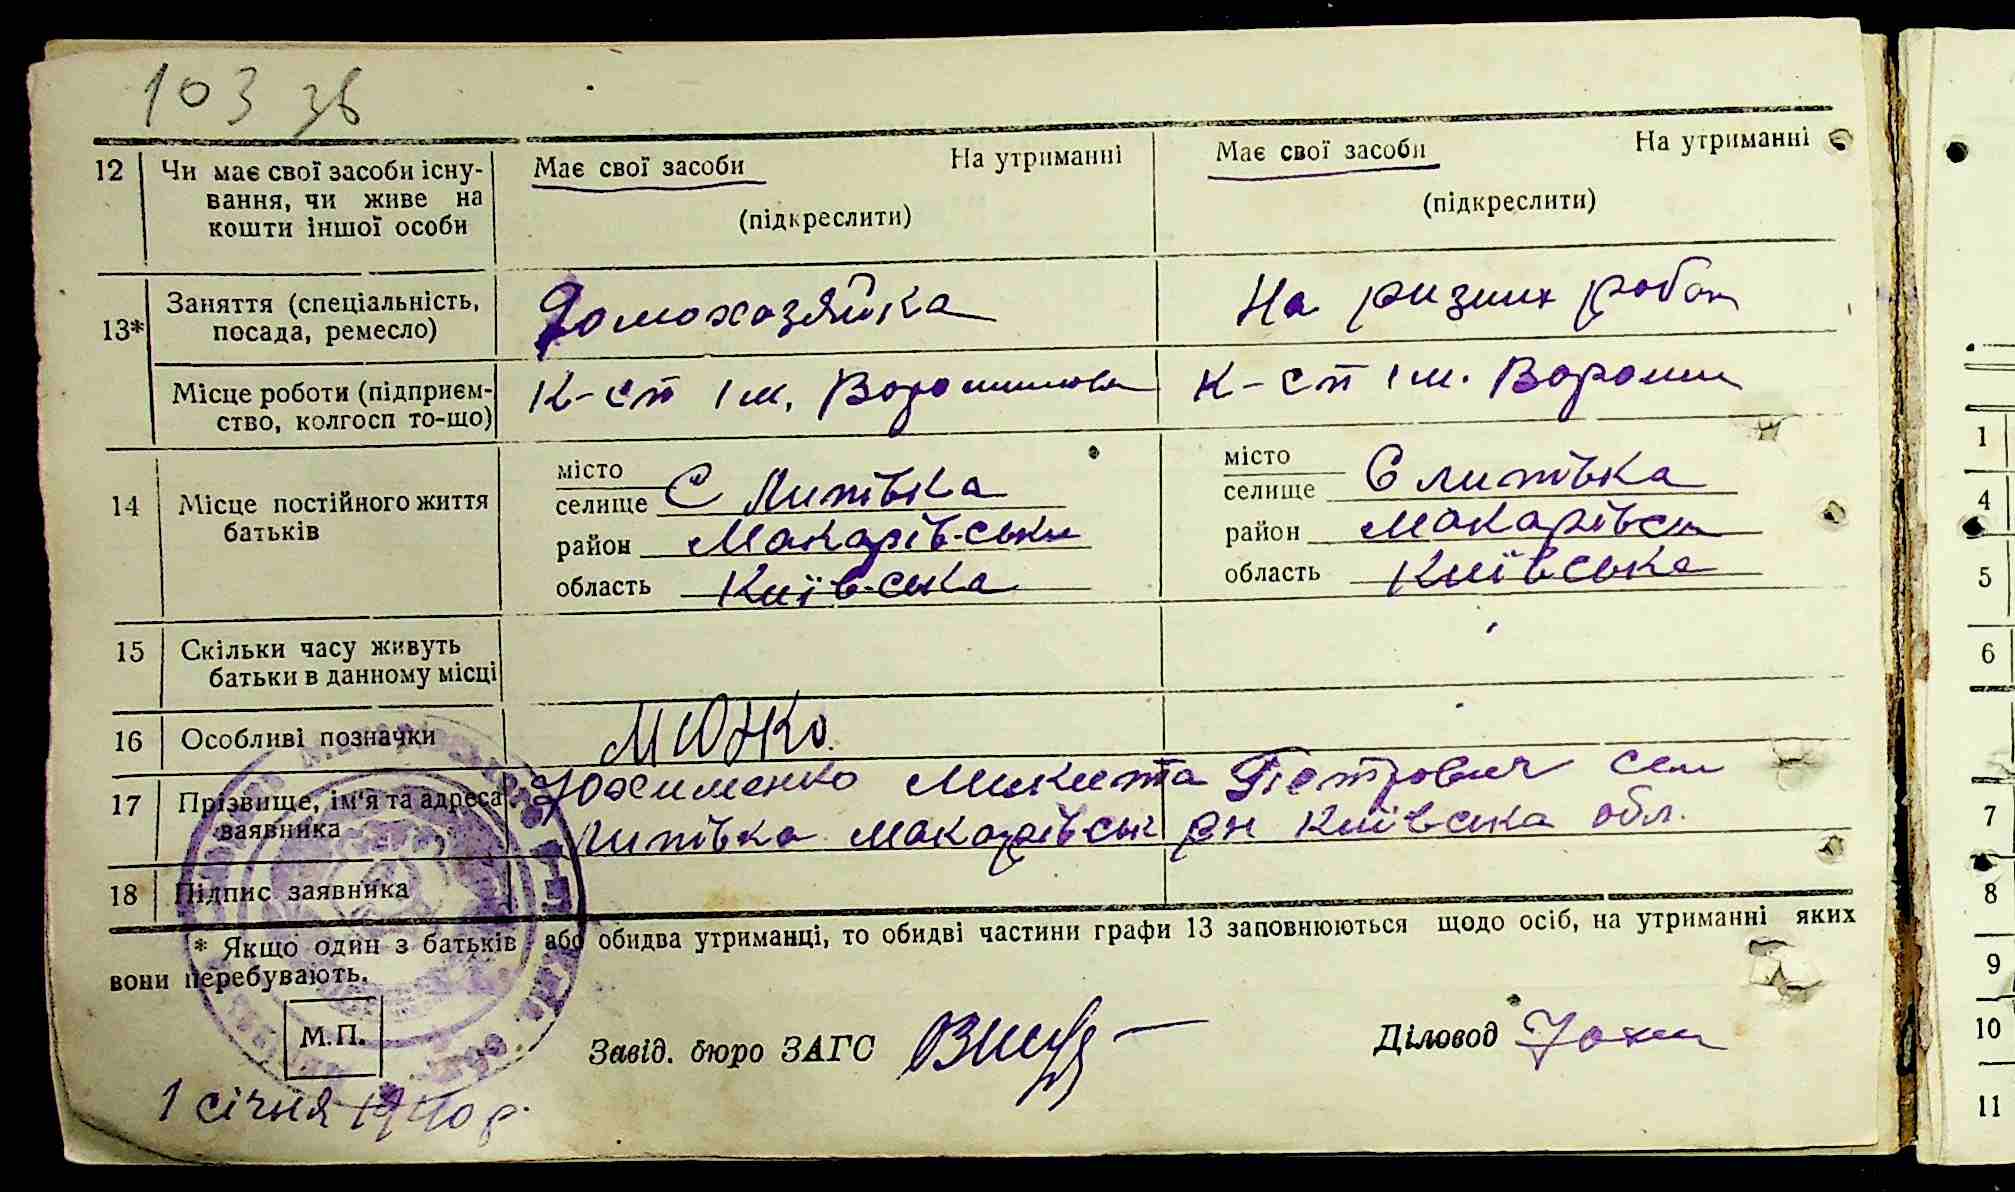 103 зв
12 Чи має свої засоби існу- Має свої засоби На утриманні Має свої засоби На утриманні
вання, чи живе на
кошти іншої особи (підкреслити) (підкреслити)
13* Заняття (спеціальність, Домохазяйка На ризних робот
посада, ремесло)
Місце роботи (підприєм- К-сп ім. Ворошилова К-сп ім. Вороши
ство, колгосп то-що)
14 Місце постійного життя місто місто
батьків селище С Липівка селище С Липівка
район Макарівськи район Макарівськ
область Київська область Київська
15 Скільки часу живуть
батьки в данному місці
16 Особливі позначки
17 Прізвище, ім'я та адреса Микита Петрович сели
заявника Липівка Макарівськ рн Київська обл.
18 Підпис заявника
* Якщо один з батьків або обидва утриманці, то обидві частини графи 13 заповнюються щодо осіб, на утриманні яких
вони перебувають.
М.П.
Завід. бюро ЗАГС Діловод
1 січня 1940 р.
1
4
5
6
7
8
9
10
11